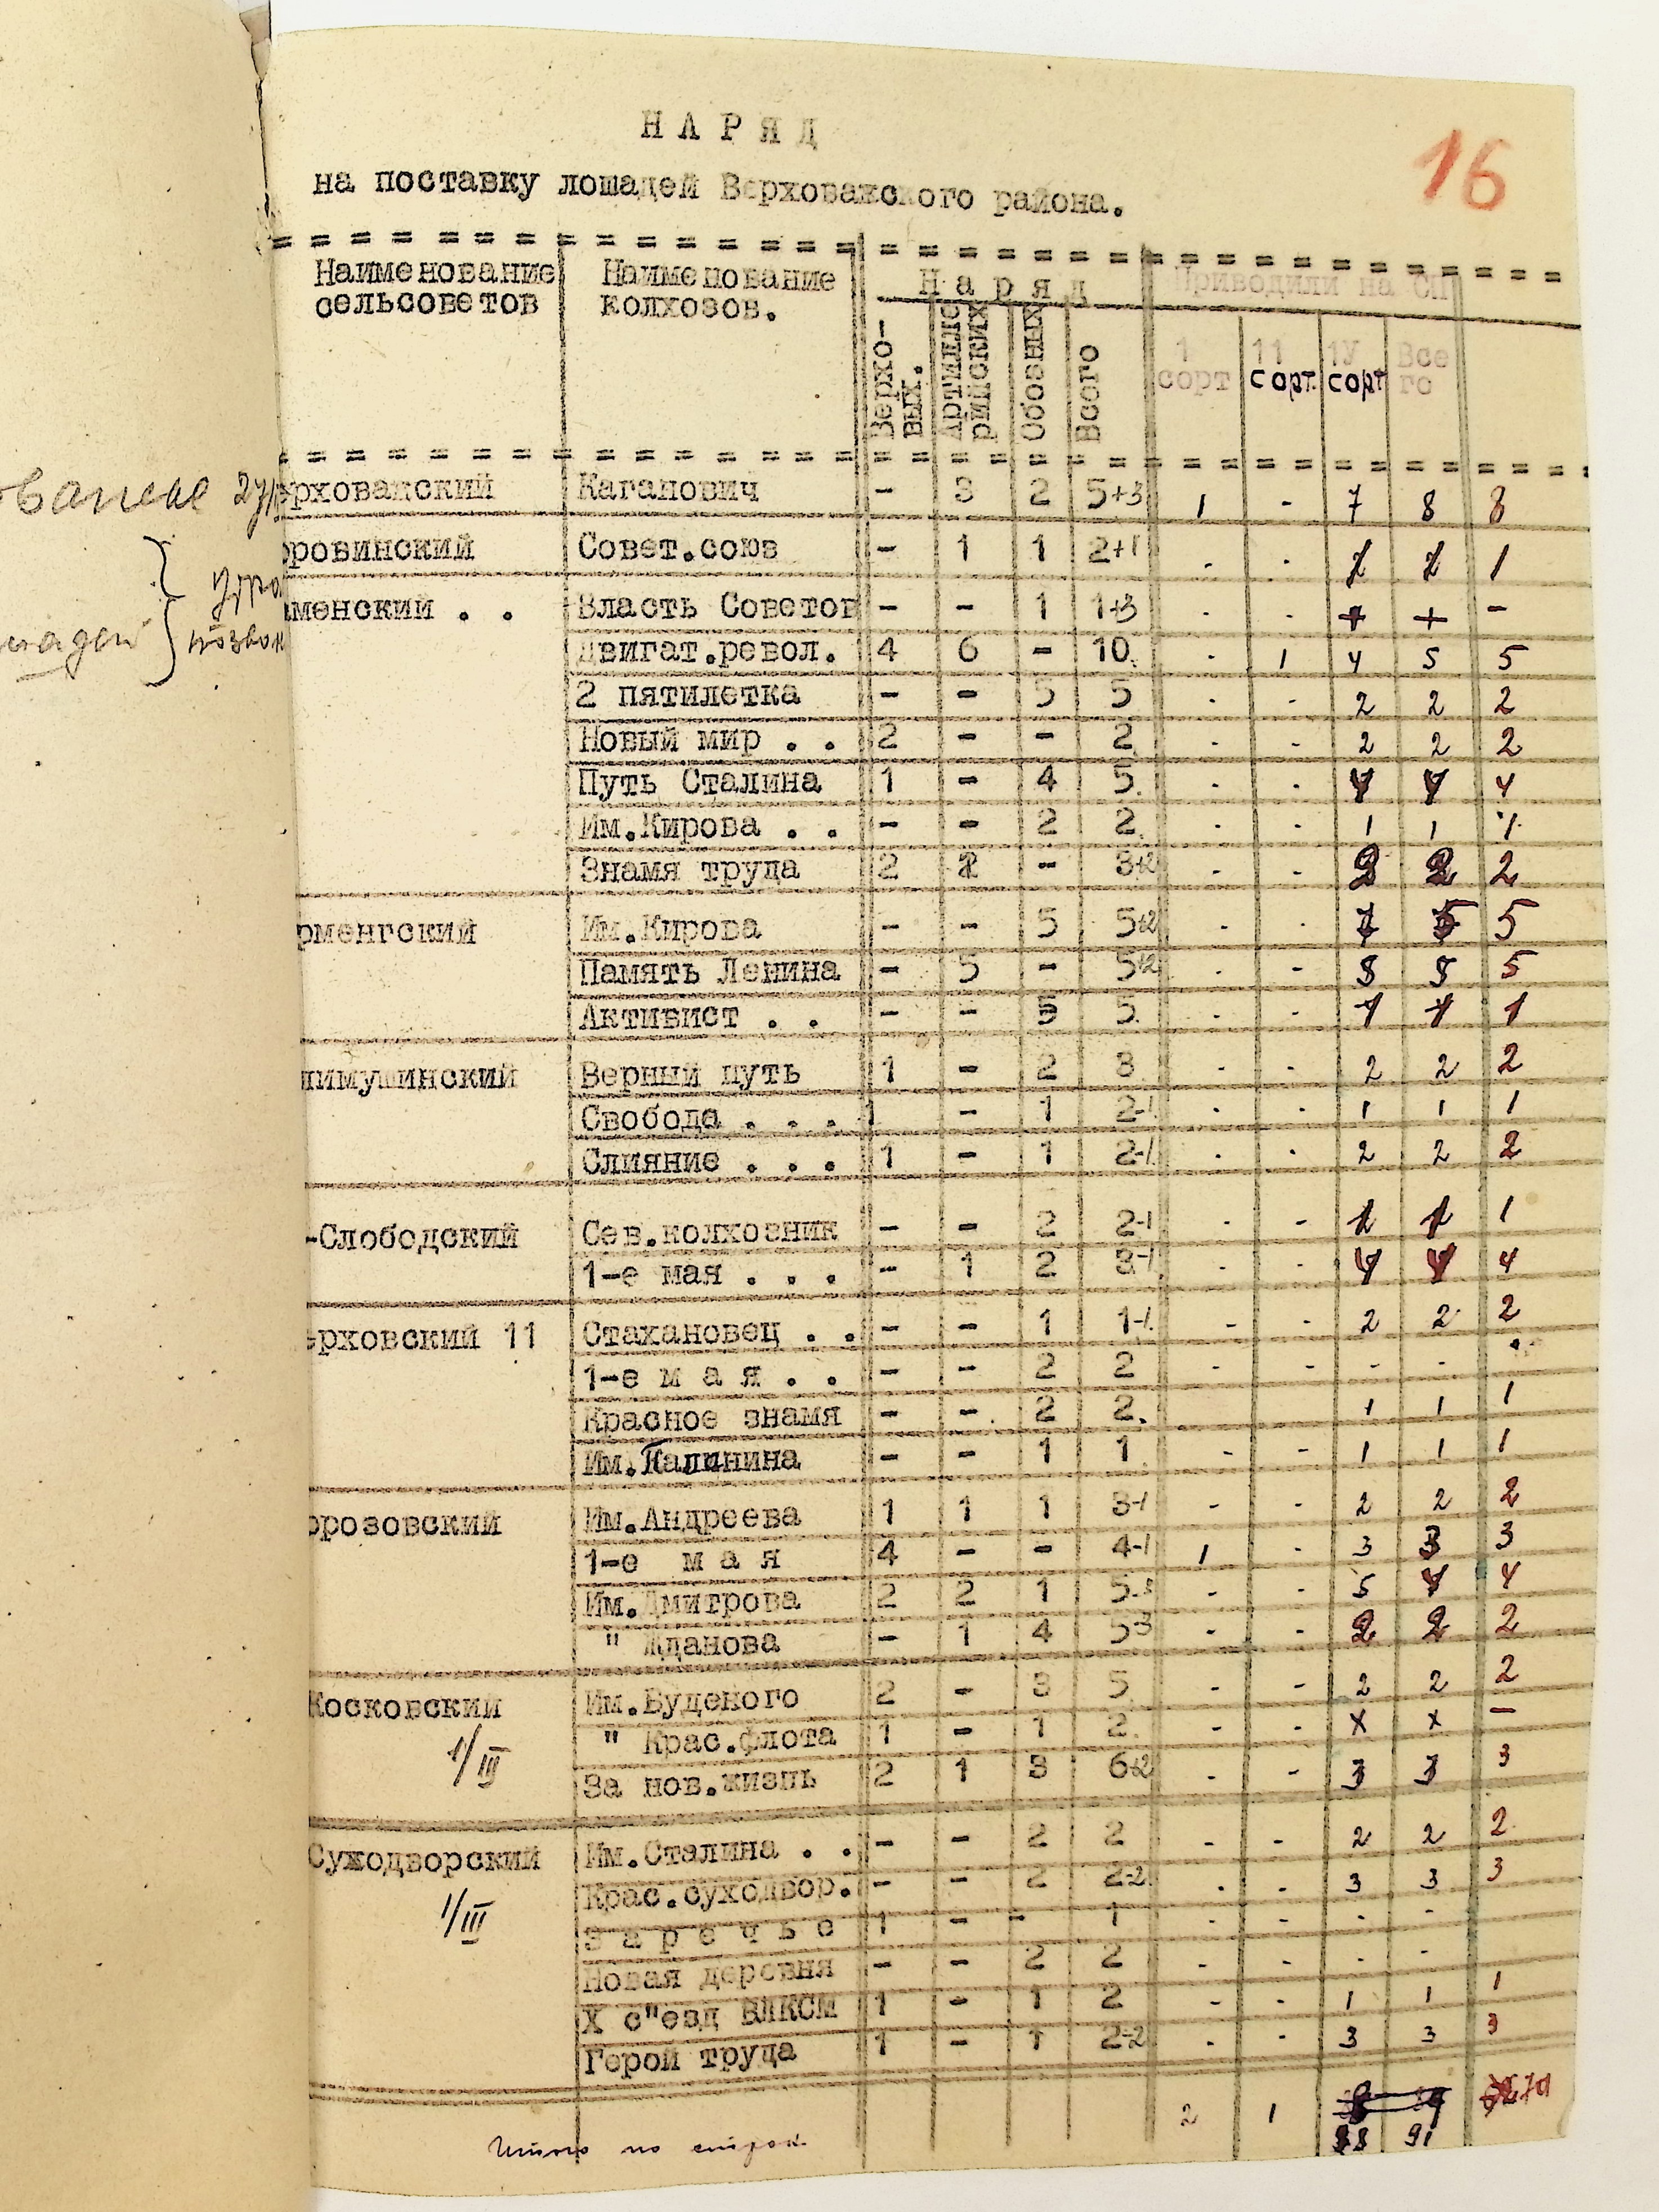 16
Н А Р Я Д
на поставку лошадей Верховажского района.
Наименование сельсоветов | Наименование колхозов. | Н а р я д | Приводили на СП
Верхо-вых. | Артилле-рийских | Обозных | Всего | 1 сорт | 11 сорт | 1У сорт | Все го
ерховажский | Каганович | - | 3 | 2 | 5+3 | 1 | - | 7 | 8 | 8
оровинский | Совет.союз | - | 1 | 1 | 2+1 | - | - | 1
аменский . . | Власть Советов | - | - | 1 | 1+3 | - | - | + | + | -
Двигат.револ. | 4 | 6 | - | 10. | - | 1 | 4 | 5 | 5
2 пятилетка | - | - | 5 | 5 | - | - | 2 | 2 | 2
Новый мир . . | 2 | - | - | 2 | - | - | 2 | 2 | 2
Путь Сталина | 1 | - | 4 | 5. | - | - | 4 | 4 | 4
Им.Кирова . . | - | - | 2 | 2 | - | - | 1 | 1 | 1
Знамя труда | 2 | 1 | - | 3+2 | - | - | 2 | 2 | 2
рменгский | Им.Кирова | - | - | 5 | 5+2 | - | - | 5 | 5
Память Ленина | - | 5 | - | 5+2 | - | - | 5 | 5 | 5
Активист . . | - | - | 5 | 5. | - | - | 1 | 1 | 1
лимушинский | Верный путь | 1 | - | 2 | 3 | - | - | 2 | 2 | 2
Свобода . . . | 1 | - | 1 | 2-1 | - | - | 1 | 1 | 1
Слияние . . . | 1 | - | 1 | 2-1 | - | - | 2 | 2 | 2
-Слободский | Сев.колхозник | - | - | 2 | 2-1 | - | - | 1 | 1 | 1
1-е мая . . . | - | 1 | 2 | 3-1 | - | - | 4 | 4 | 4
ерховский 11 | Стахановец . . | - | - | 1 | 1-1 | - | - | 2 | 2 | 2
1-е м а я . . | - | - | 2 | 2 | - | - | - | -
Красное знамя | - | - | 2 | 2. | 1 | 1 | 1
Им.Калинина | - | - | 1 | 1 | - | - | 1 | 1 | 1
орозовский | Им.Андреева | 1 | 1 | 1 | 3-1 | - | - | 2 | 2 | 2
1-е м а я | 4 | - | - | 4-1 | 1 | - | 3 | 3 | 3
Им.Дмитрова | 2 | 2 | 1 | 5 | - | - | 5 | 4 | 4
" Жданова | - | 1 | 4 | 5-3 | - | - | 2 | 2 | 2
Московский | Им.Буденого | 2 | - | 3 | 5 | - | - | 2 | 2 | 2
1/III | " Крас.флота | 1 | - | 1 | 2. | - | - | х | х | -
За нов.жизнь | 2 | 1 | 3 | 6+2 | - | - | 3 | 3 | 3
Суходворский | Им.Сталина . . | - | - | 2 | 2 | - | - | 2 | 2 | 2
1/III | Крас.суходвор. | - | - | 2 | 2-2 | - | - | 3 | 3 | 3
З а р е ч ь е | 1 | - | - | 1 | - | - | - | -
Новая деревня | - | - | 2 | 2 | - | - | - | -
Х с"езд ВЛКСМ | 1 | - | 1 | 2 | - | - | 1 | 1 | 1
Герой труда | 1 | - | 1 | 2-2 | - | - | 3 | 3 | 3
Итого по стран. | 2 | 1 | 88 | 91